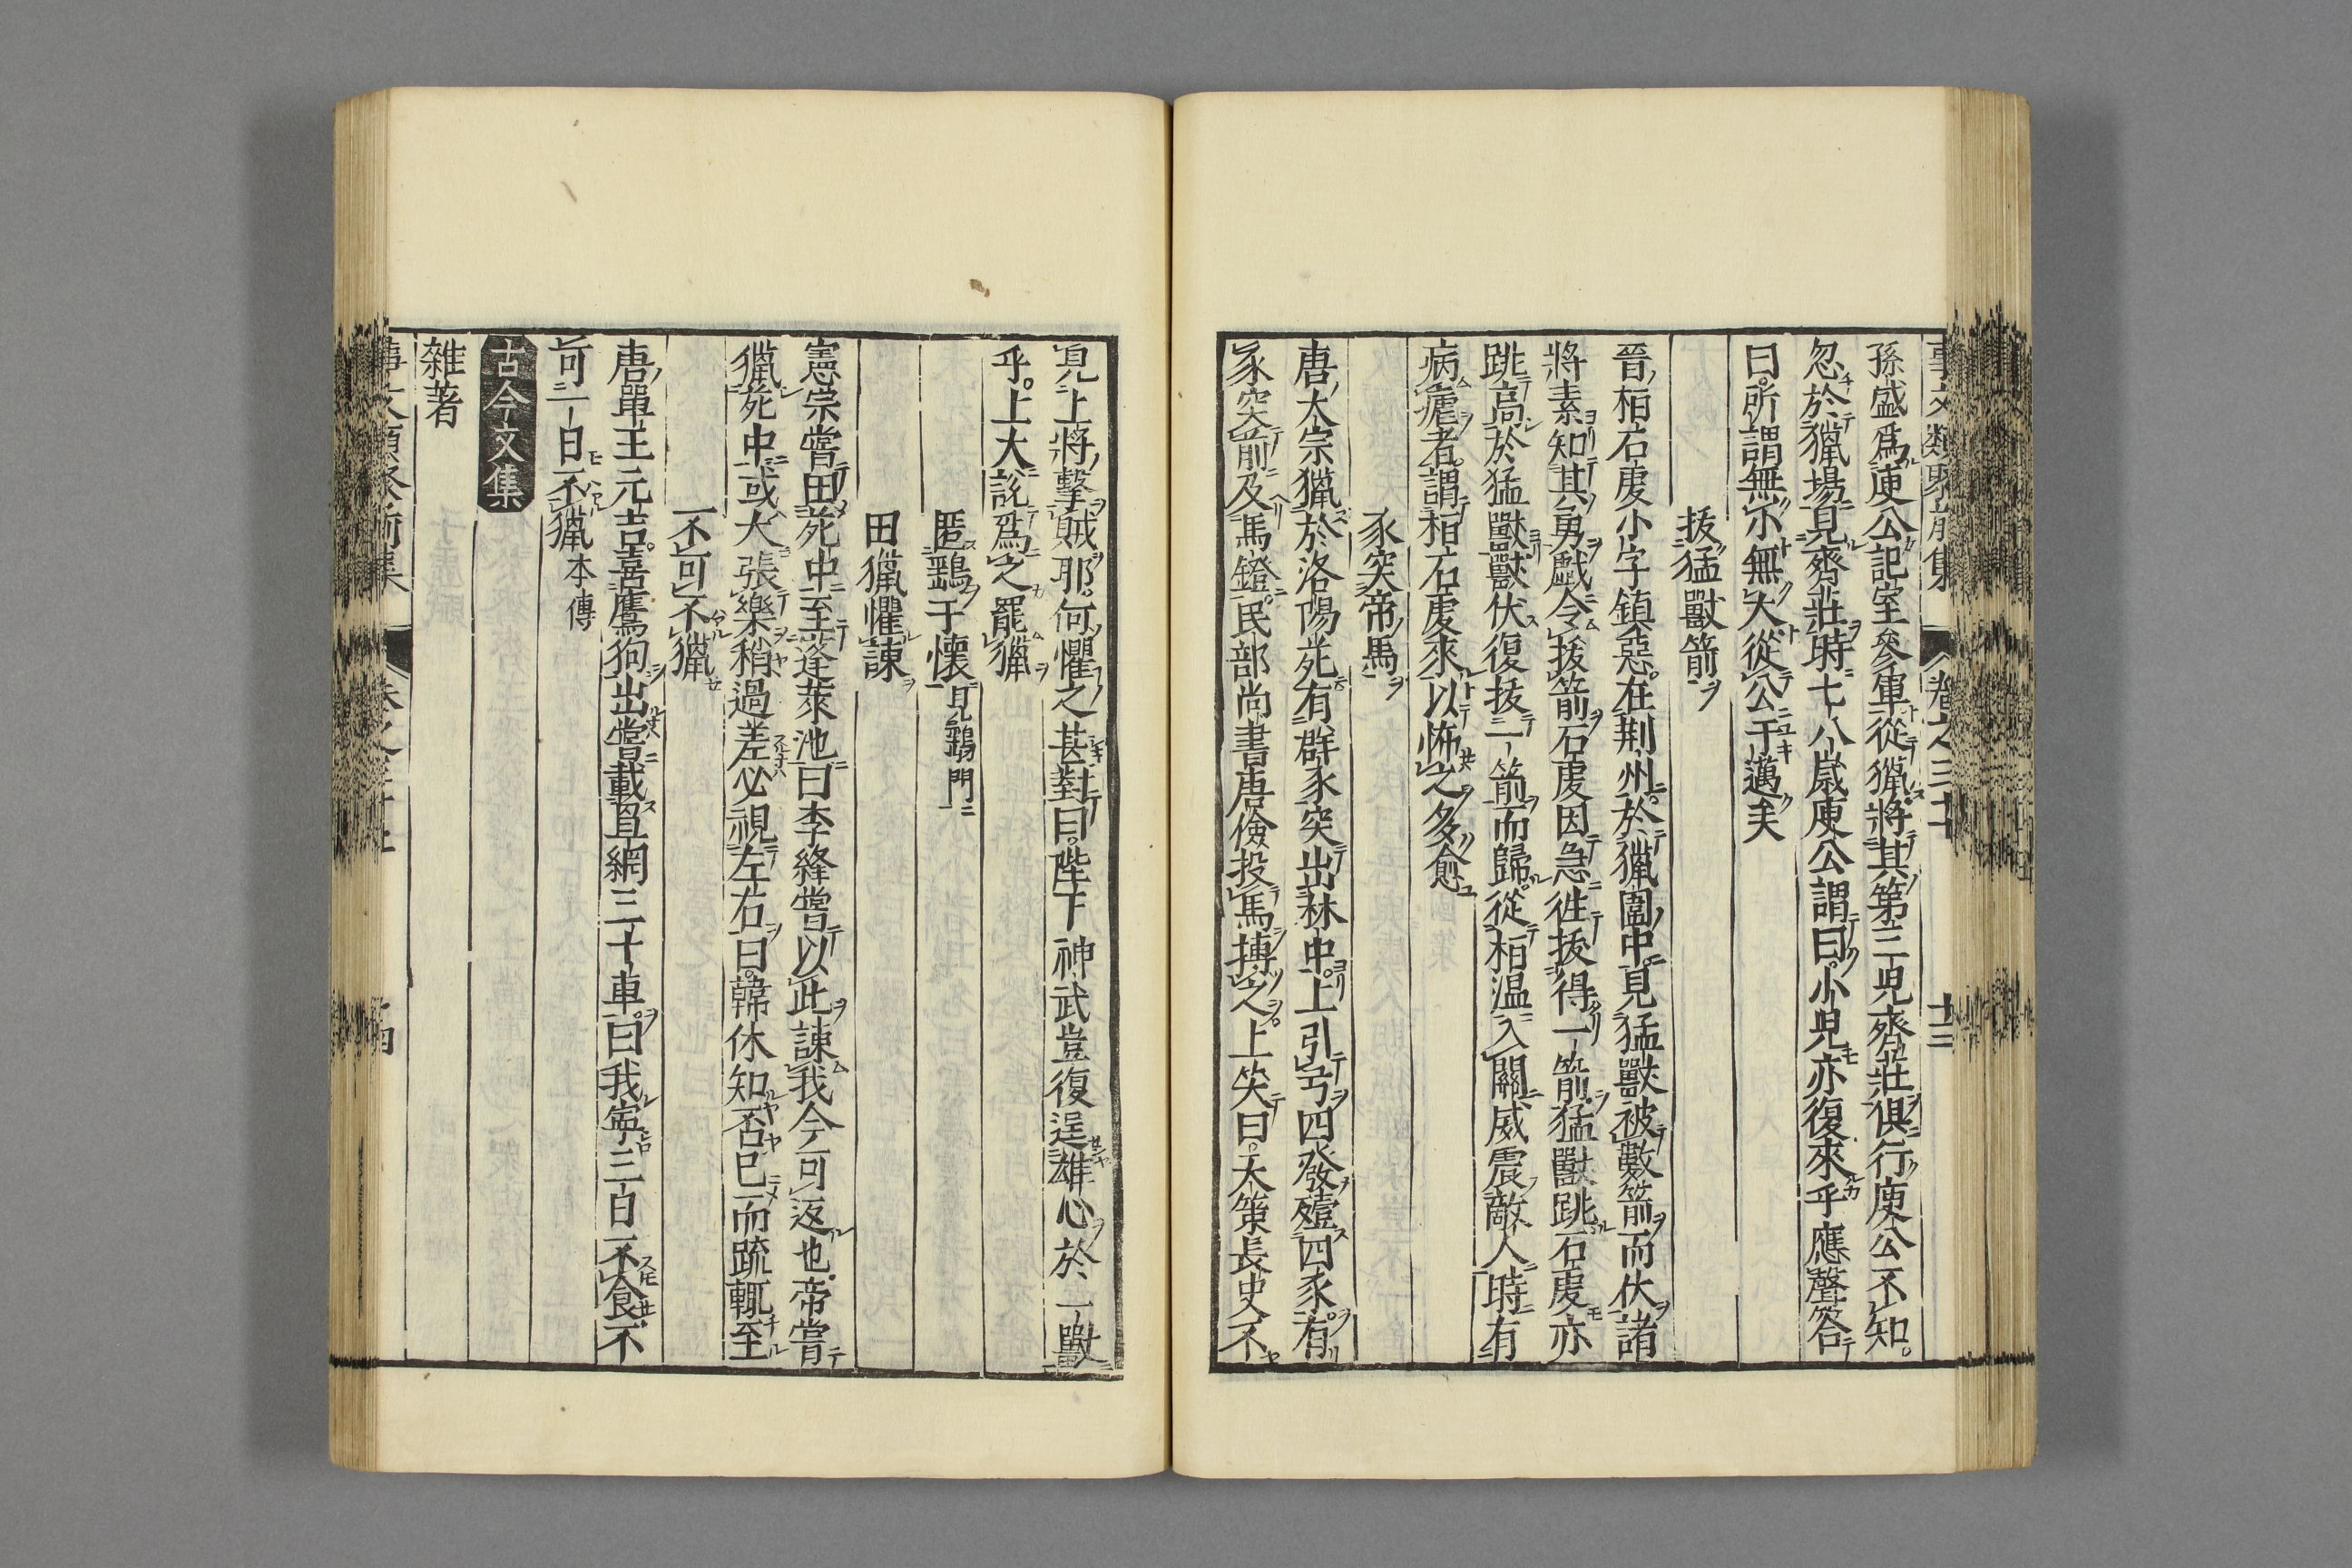 事文類聚前集 卷之三十七 十三
孫盛爲庾公記室參軍從獵將其第三児齊莊俱行庾公不知。
忽於獵場見齊莊時七八歲庾公謂曰。小児亦復來乎應聲答
曰。所謂無小無大從公于邁矣
拔猛獸箭
晉桓石虔小字鎮惡。在荆州。於獵圍中見猛獸被數箭而伏諸
將素知其勇戯令拔箭石虔因急徃拔得一箭猛獸跳石虔亦
跳高於猛獸獸伏復拔一箭而歸。從桓温入關威震敵人時有
病瘧者。謂桓石虔來以怖之多愈
豕突帝馬
唐太宗獵於洛陽苑有群豕突出林中。上引弓四發殪四豕。有
豕突前及馬鐙。民部尚書唐儉投馬搏之。上笑曰。天策長史不
見上將擊賊耶。何懼之甚對曰。陛下神武豈復逞雄心於一獸
乎。上大說爲之罷獵
匿鷂于懷 見鷂門
田獵懼諫
憲宗嘗田苑中至蓬萊池曰李絳嘗以此諫我今可返也帝嘗
獵苑中或大張樂稍過差必視左右曰韓休知否已而疏輒至
不可不獵
唐單王元吉。喜鷹狗出嘗載罝網三十車。曰我寧三日不食不
可一日不獵 本傳
古今文集
雜著
事文類聚前集 卷之三十七 十四